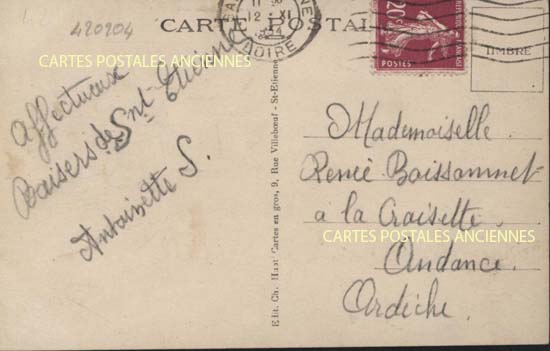 420904
CARTE POSTALE
12 XI
LOIRE
20c
POSTES
TIMBRE
CARTES POSTALES ANCIENNES
Affectueux
Baisers de Snt. Etienne
Antoinette S.
Edit. Ch. Huat Cartes en gros, 9, Rue Villebœuf - St-Etienne
Mademoiselle
Renée Boissonnet
à la Croisette
CARTES POSTALES ANCIENNES
Andance
Ardèche.